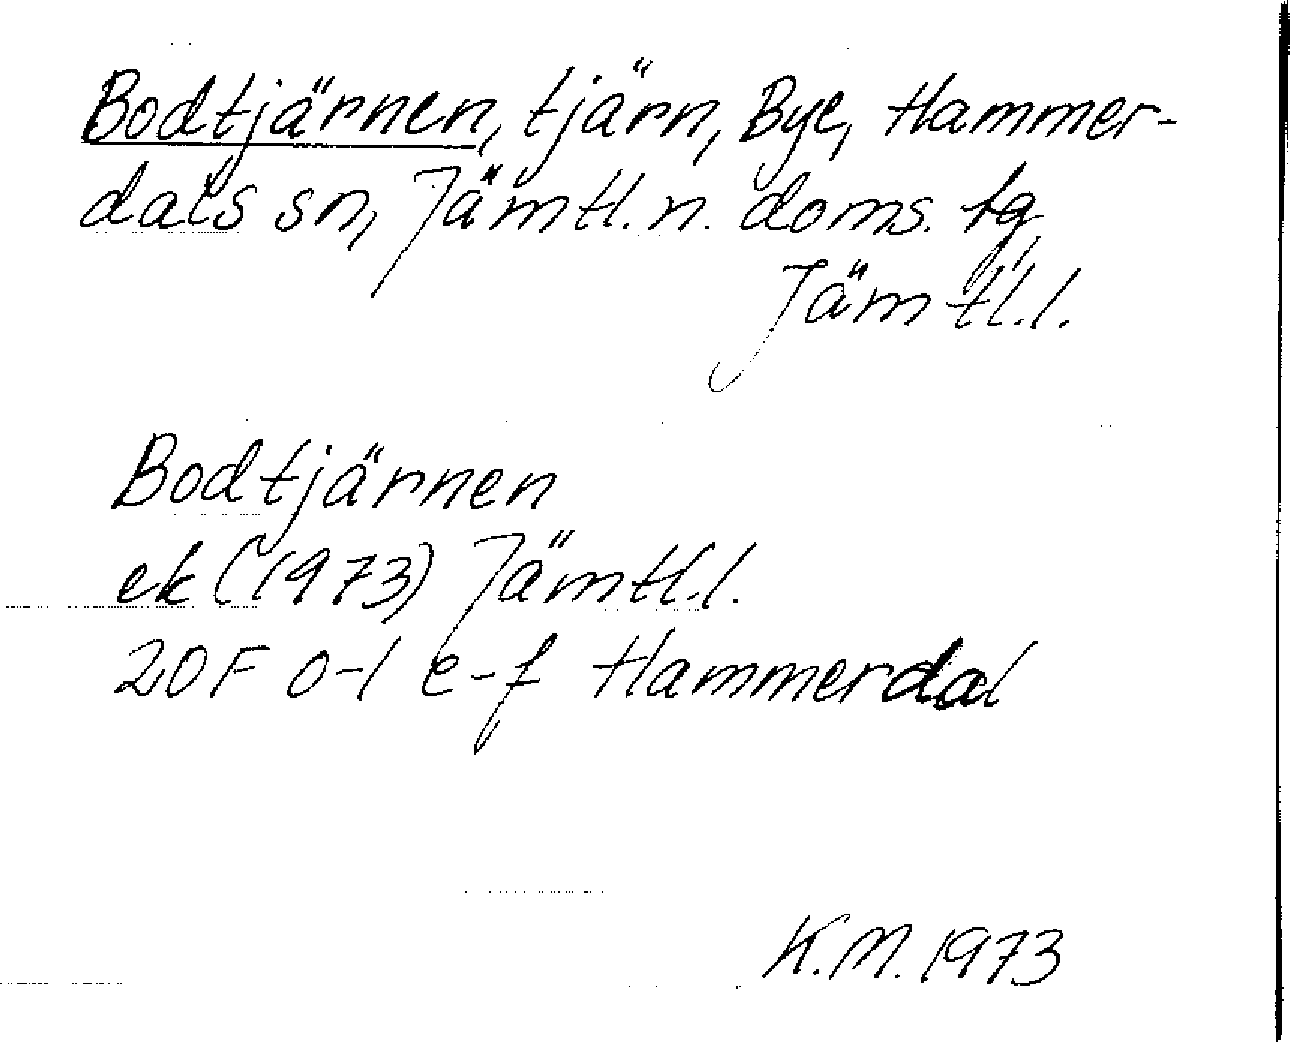 Bodtjärnen, tjärn, Bye, Hammer-
dals sn, Jämtl. n. doms. tg
Jämtl. l.
Bodtjärnen
ek (1973) Jämtl. l.
20F 0-1 e-f Hammerdal
K.M. 1973